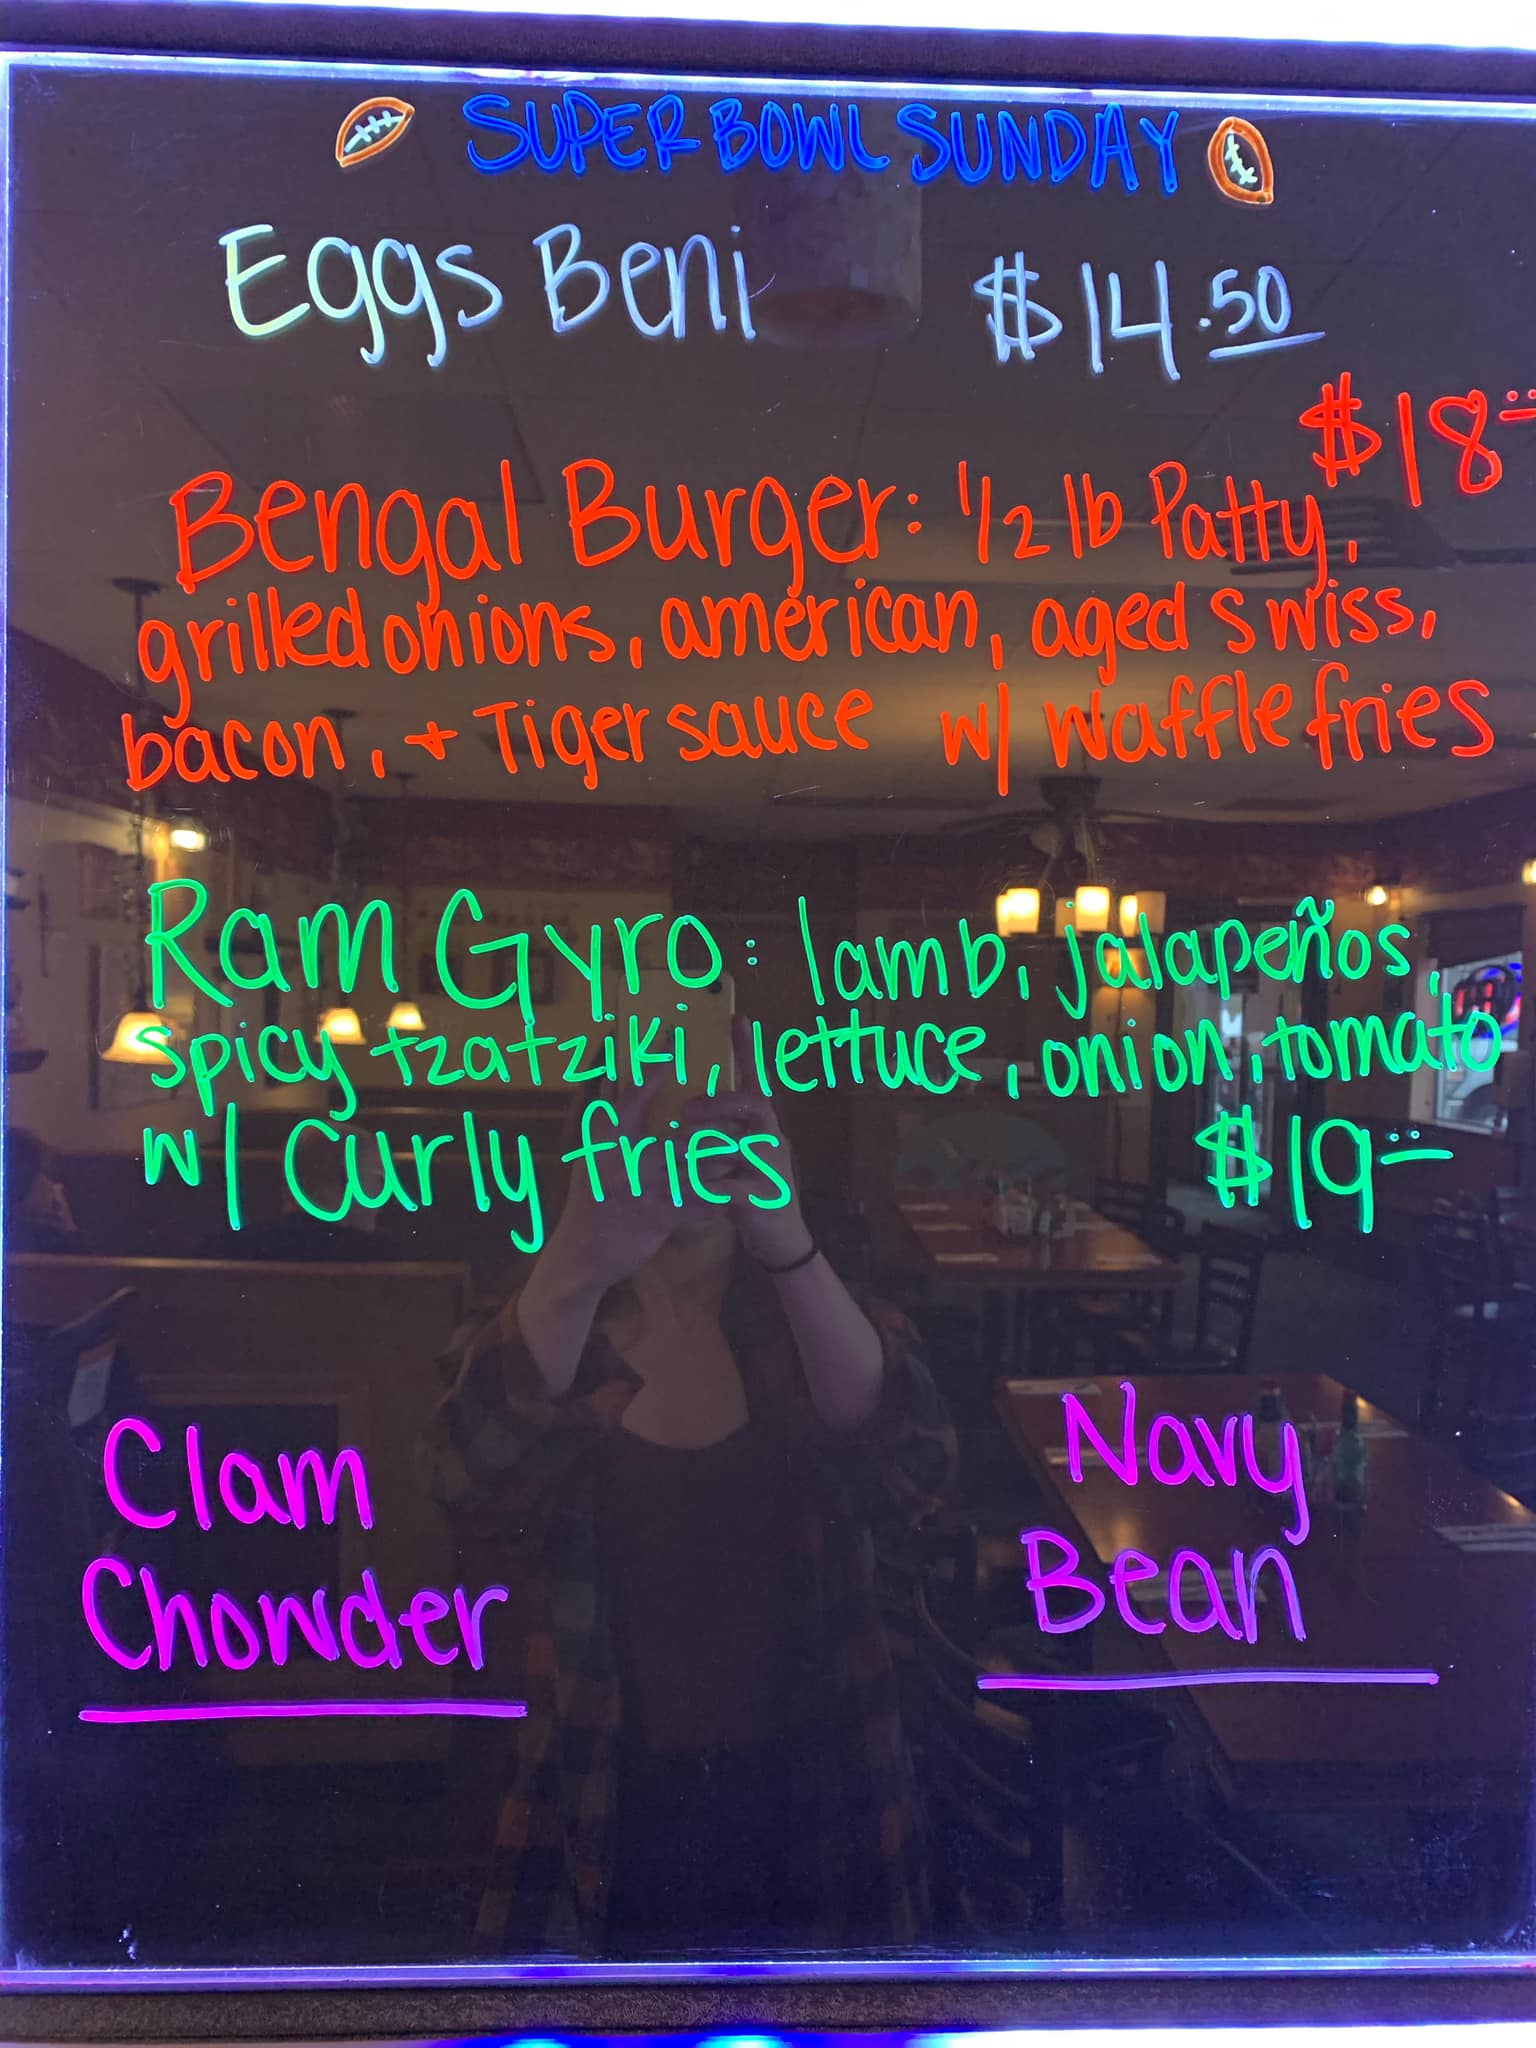 SUPER BOWL SUNDAY
Eggs Beni $14.50
$18
Bengal Burger: 1/2 lb Patty,
grilled onions, american, aged swiss,
bacon, + Tiger sauce w/ waffle fries
Ram Gyro: lamb, jalapeños,
spicy tzatziki, lettuce, onion, tomato
w/ curly fries $19
Clam
Chowder
Navy
Bean